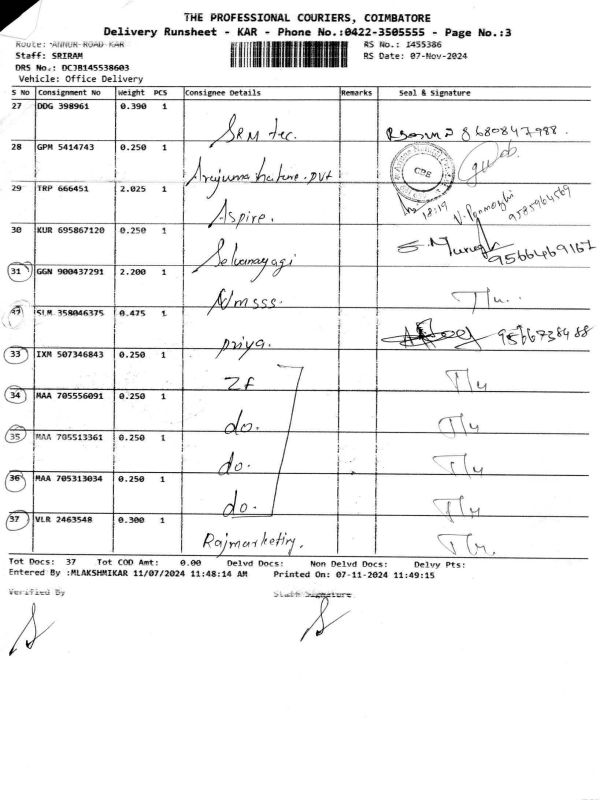 THE PROFESSIONAL COURIERS, COIMBATORE
Delivery Runsheet - KAR - Phone No.:0422-3505555 - Page No.:3
Route: ANNUR-ROAD-KAR
RS No.: I455386
Staff: SRIRAM
RS Date: 07-Nov-2024
DRS No.: DCJB145538603
Vehicle: Office Delivery
S No Consignment No Weight PCS Consignee Details Remarks Seal & Signature
27 DDG 398961 0.390 1
SRM tec. 8680847988.
28 GPM 5414743 0.250 1
CBE
pvt
29 TRP 666451 2.025 1
Aspire. 18:19 9585964569
30 KUR 695867120 0.250 1
Selvanayagi 9566469167
31 GGN 900437291 2.200 1
Nmsss.
32 SLM 358046375 0.475 1
priya. 9566738488
33 IXM 507346843 0.250 1
ZF
34 MAA 705556091 0.250 1
do.
35 MAA 705513361 0.250 1
do.
36 MAA 705313034 0.250 1
do.
37 VLR 2463548 0.300 1
Rajmarketing.
Tot Docs: 37 Tot COD Amt: 0.00 Delvd Docs: Non Delvd Docs: Delvy Pts:
Entered By :MLAKSHMIKAR 11/07/2024 11:48:14 AM Printed On: 07-11-2024 11:49:15
Verified By Staff Signature